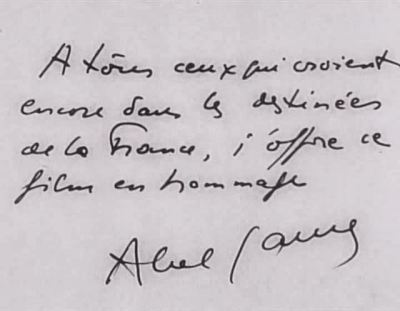 A tous ceux qui croient
encore dans les destinées
de la France, j'offre ce
film en hommage
Abel Gance